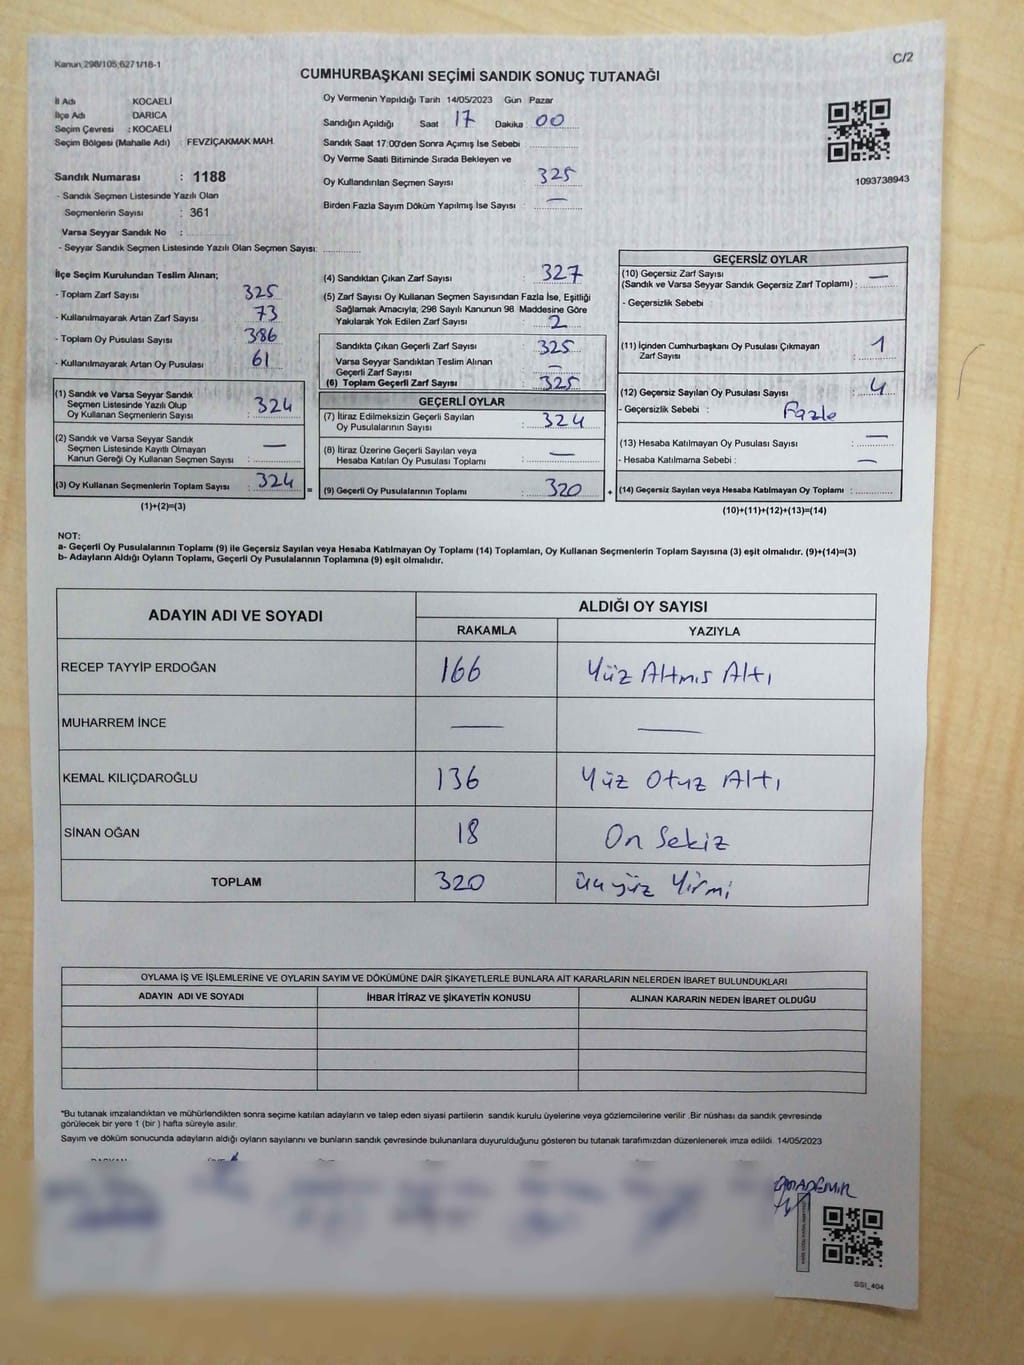 Kanun 298/105,6271/18-1
C/2
CUMHURBAŞKANI SEÇİMİ SANDIK SONUÇ TUTANAĞI
İl Adı KOCAELİ
İlçe Adı DARICA
Seçim Çevresi : KOCAELİ
Seçim Bölgesi (Mahalle Adı) FEVZİÇAKMAK MAH.
Sandık Numarası : 1188
- Sandık Seçmen Listesinde Yazılı Olan
Seçmenlerin Sayısı : 361
Varsa Seyyar Sandık No :
- Seyyar Sandık Seçmen Listesinde Yazılı Olan Seçmen Sayısı:
Oy Vermenin Yapıldığı Tarih 14/05/2023 Gün Pazar
Sandığın Açıldığı Saat 17 Dakika : 00
Sandık Saat 17:00'den Sonra Açımış İse Sebebi
Oy Verme Saati Bitiminde Sırada Bekleyen ve
Oy Kullandırılan Seçmen Sayısı : 325
Birden Fazla Sayım Döküm Yapılmış İse Sayısı : —
1093738943
İlçe Seçim Kurulundan Teslim Alınan;
- Toplam Zarf Sayısı 325
- Kullanılmayarak Artan Zarf Sayısı 73
- Toplam Oy Pusulası Sayısı 386
- Kullanılmayarak Artan Oy Pusulası 61
(1) Sandık ve Varsa Seyyar Sandık
Seçmen Listesinde Yazılı Olup
Oy Kullanan Seçmenlerin Sayısı : 324
(2) Sandık ve Varsa Seyyar Sandık
Seçmen Listesinde Kayıtlı Olmayan
Kanun Gereği Oy Kullanan Seçmen Sayısı : —
(3) Oy Kullanan Seçmenlerin Toplam Sayısı : 324
(1)+(2)=(3)
=
(4) Sandıktan Çıkan Zarf Sayısı : 327
(5) Zarf Sayısı Oy Kullanan Seçmen Sayısından Fazla İse, Eşitliği
Sağlamak Amacıyla; 298 Sayılı Kanunun 98. Maddesine Göre
Yakılarak Yok Edilen Zarf Sayısı : 2
Sandıkta Çıkan Geçerli Zarf Sayısı : 325
Varsa Seyyar Sandıktan Teslim Alınan
Geçerli Zarf Sayısı : —
(6) Toplam Geçerli Zarf Sayısı : 325
GEÇERLİ OYLAR
(7) İtiraz Edilmeksizin Geçerli Sayılan
Oy Pusulalarının Sayısı : 324
(8) İtiraz Üzerine Geçerli Sayılan veya
Hesaba Katılan Oy Pusulası Toplamı : —
(9) Geçerli Oy Pusulalarının Toplamı : 320
+
GEÇERSİZ OYLAR
(10) Geçersiz Zarf Sayısı —
(Sandık ve Varsa Seyyar Sandık Geçersiz Zarf Toplamı) :
- Geçersizlik Sebebi
(11) İçinden Cumhurbaşkanı Oy Pusulası Çıkmayan
Zarf Sayısı : 1
(12) Geçersiz Sayılan Oy Pusulası Sayısı : 4
- Geçersizlik Sebebi : Fazle
(13) Hesaba Katılmayan Oy Pusulası Sayısı : —
- Hesaba Katılmama Sebebi : —
(14) Geçersiz Sayılan veya Hesaba Katılmayan Oy Toplamı :
(10)+(11)+(12)+(13)=(14)
NOT:
a- Geçerli Oy Pusulalarının Toplamı (9) ile Geçersiz Sayılan veya Hesaba Katılmayan Oy Toplamı (14) Toplamları, Oy Kullanan Seçmenlerin Toplam Sayısına (3) eşit olmalıdır. (9)+(14)=(3)
b- Adayların Aldığı Oyların Toplamı, Geçerli Oy Pusulalarının Toplamına (9) eşit olmalıdır.
ADAYIN ADI VE SOYADI ALDIĞI OY SAYISI
RAKAMLA YAZIYLA
RECEP TAYYİP ERDOĞAN 166 Yüz Altmıs Altı
MUHARREM İNCE — —
KEMAL KILIÇDAROĞLU 136 Yüz Otuz Altı
SİNAN OĞAN 18 On Sekiz
TOPLAM 320 üçyüz Yirmi
OYLAMA İŞ VE İŞLEMLERİNE VE OYLARIN SAYIM VE DÖKÜMÜNE DAİR ŞİKAYETLERLE BUNLARA AİT KARARLARIN NELERDEN İBARET BULUNDUKLARI
ADAYIN ADI VE SOYADI İHBAR İTİRAZ VE ŞİKAYETİN KONUSU ALINAN KARARIN NEDEN İBARET OLDUĞU
*Bu tutanak imzalandıktan ve mühürlendikten sonra seçime katılan adayların ve talep eden siyasi partilerin sandık kurulu üyelerine veya gözlemcilerine verilir .Bir nüshası da sandık çevresinde
görülecek bir yere 1 (bir ) hafta süreyle asılır.
Sayım ve döküm sonucunda adayların aldığı oyların sayılarını ve bunların sandık çevresinde bulunanlara duyurulduğunu gösteren bu tutanak tarafımızdan düzenlenerek imza edildi. 14/05/2023
SSI_404